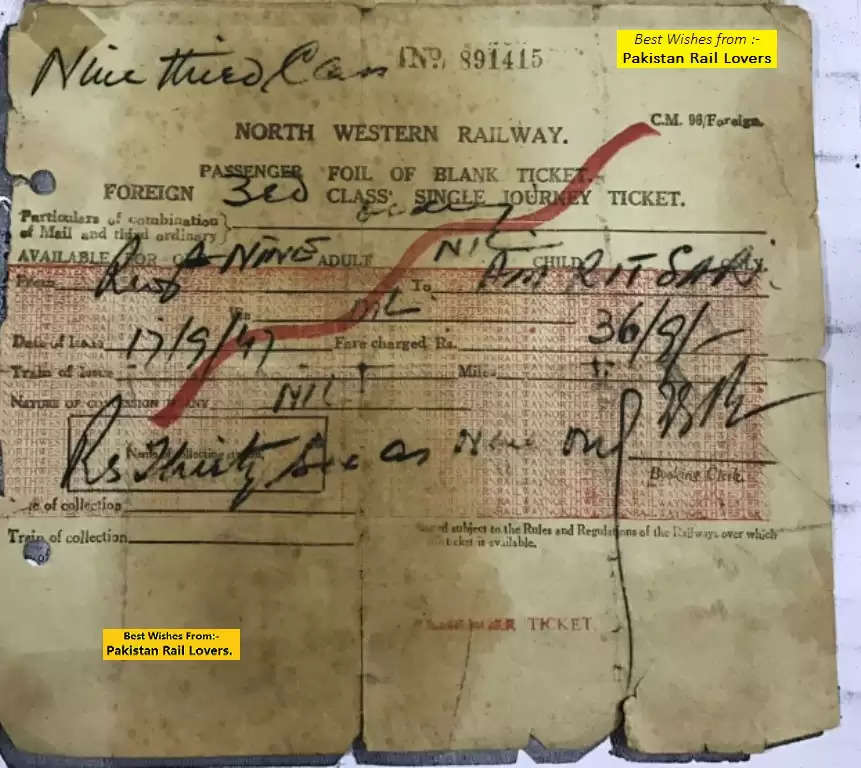 Best Wishes from :-
Pakistan Rail Lovers
Nine third Class
No. 891415
C.M. 96/Foreign.
NORTH WESTERN RAILWAY.
PASSENGER FOIL OF BLANK TICKET.
FOREIGN 3rd CLASS SINGLE JOURNEY TICKET.
Particulars of combination
of Mail and third ordinary
AVAILABLE FOR NINE ADULT NIL CHILD ONLY.
From To AMRITSAR
Via NIL
Date of Issue 17/9/47 Fare charged Rs. 36/9/-
Train of Issue Miles
NATURE OF CONCESSION IF ANY NIL
Rs Thirty Six as Nine only
Name of collecting
Booking Clerk.
of collection
Train of collection
subject to the Rules and Regulations of the Railways over which
ticket is available.
TICKET.
Best Wishes From:-
Pakistan Rail Lovers.